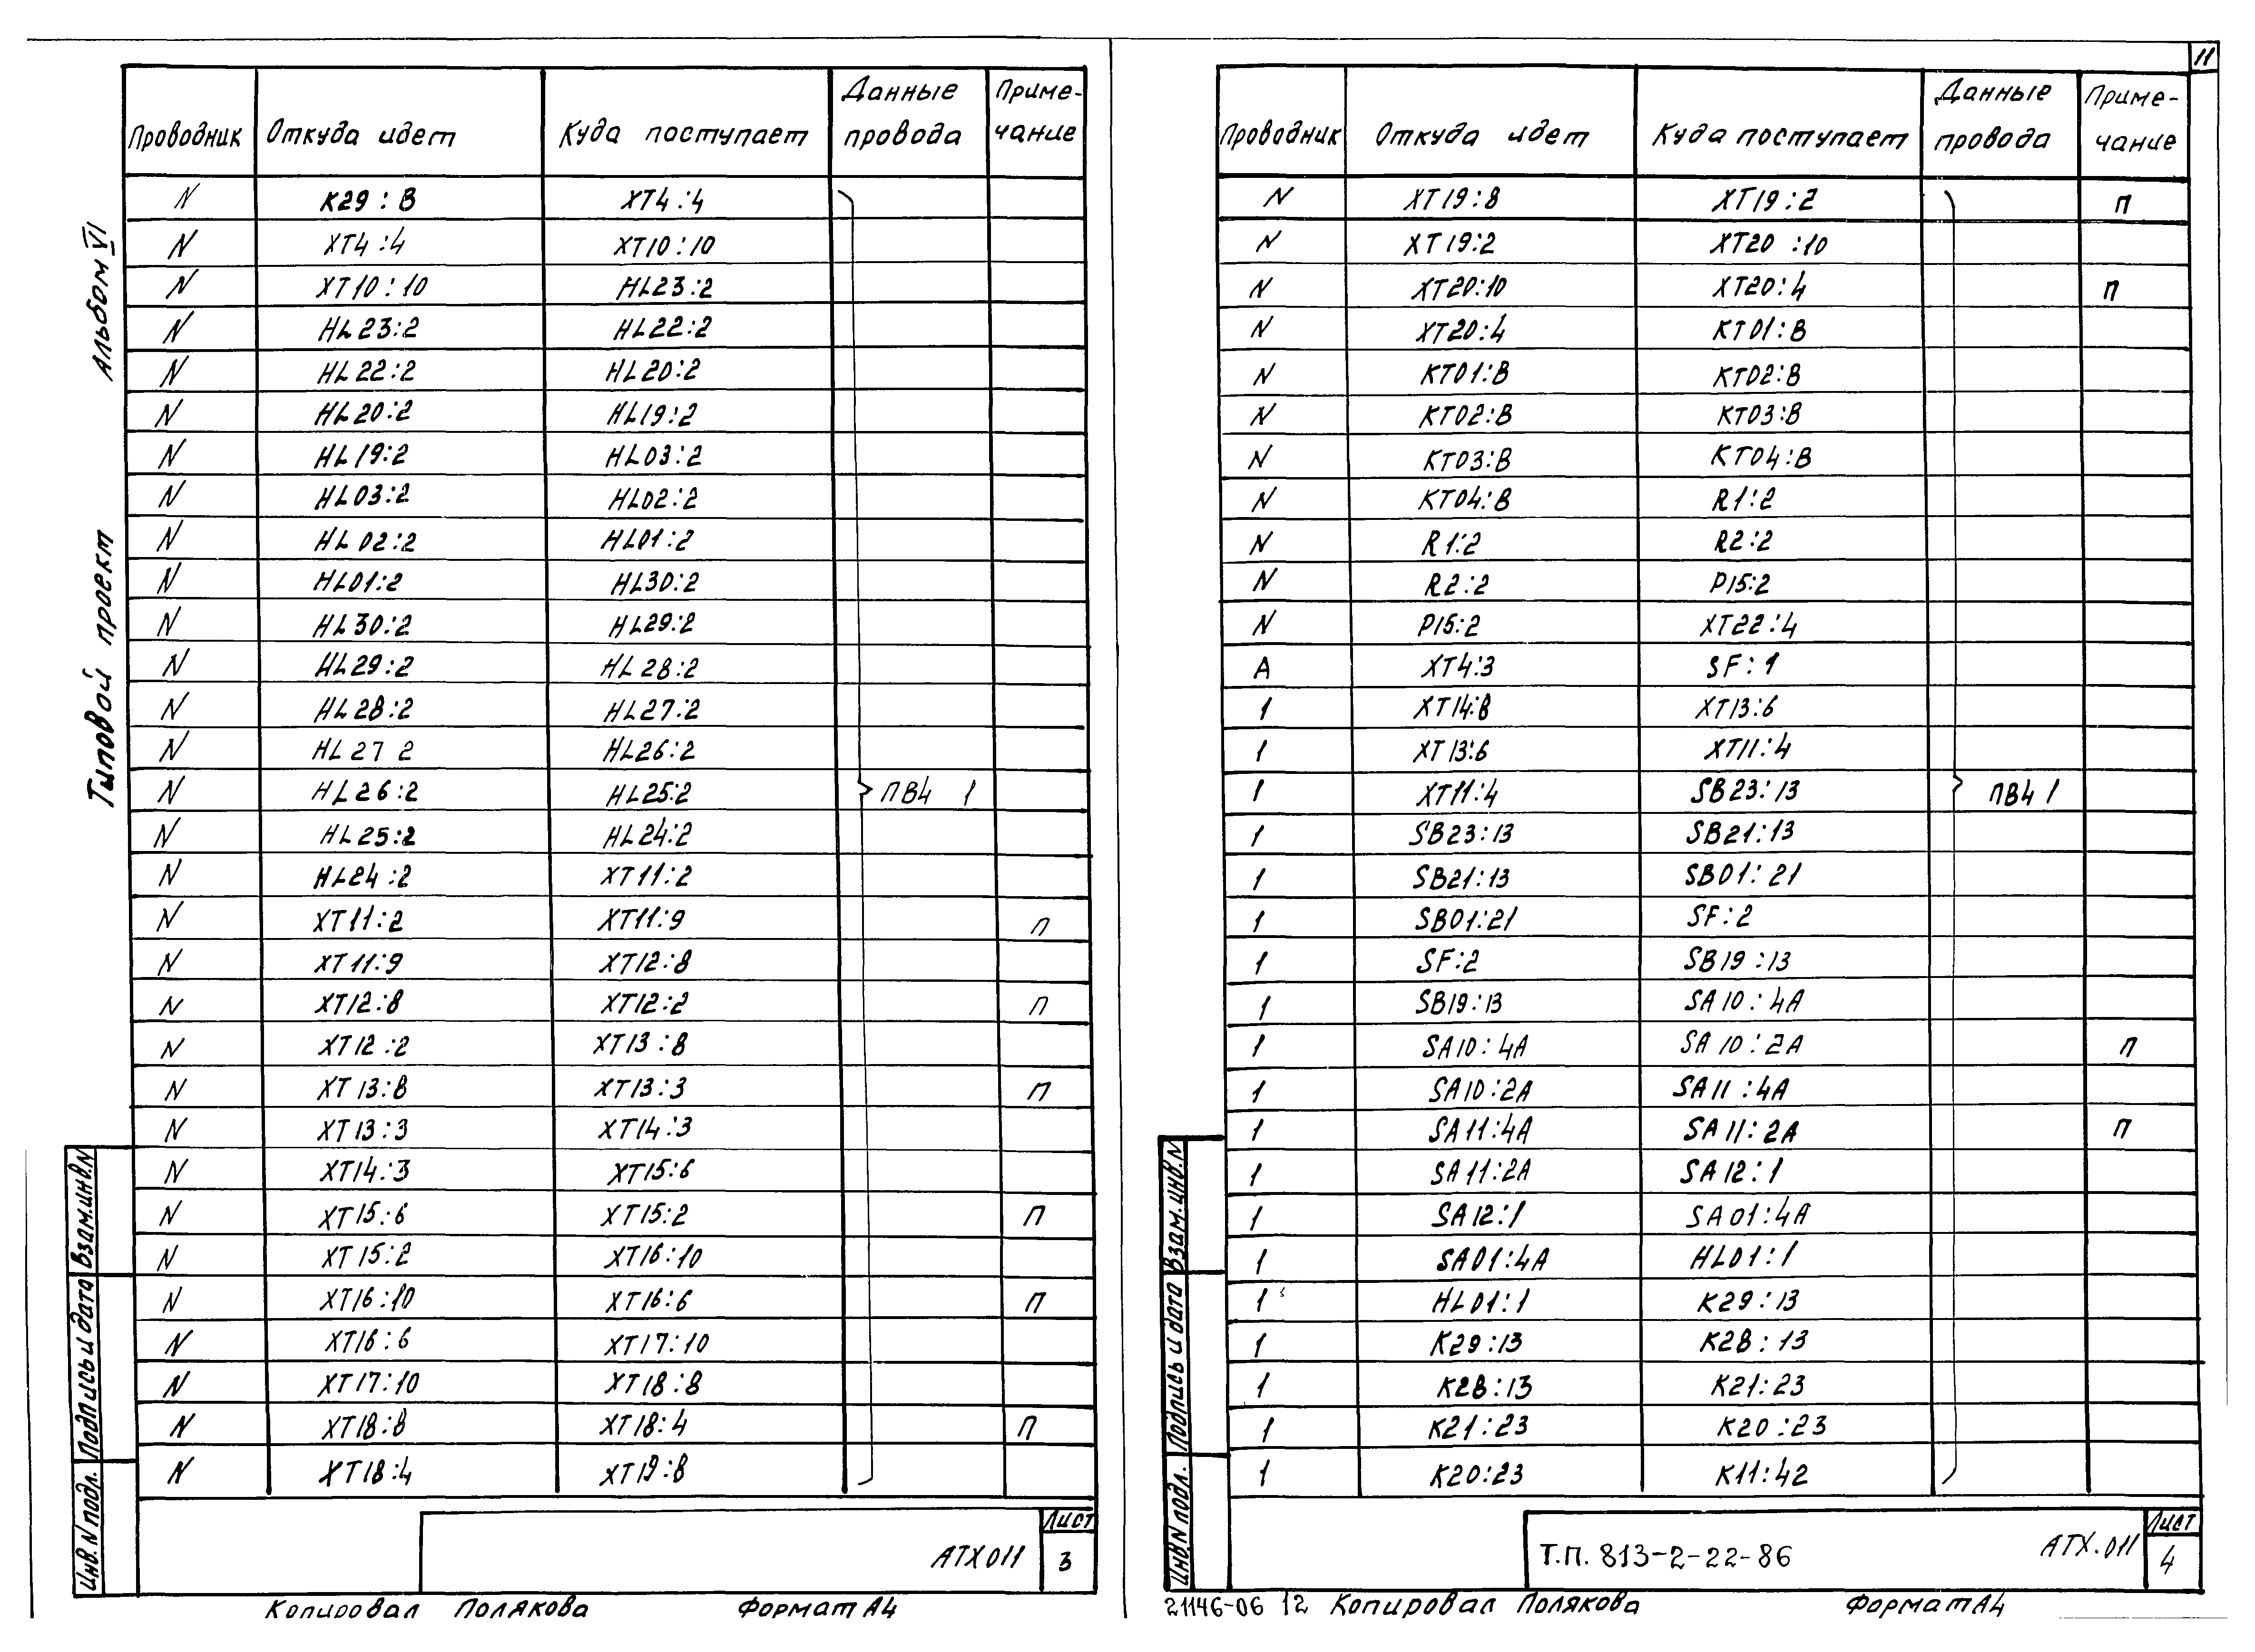 11
Альбом VI
Типовой проект
Проводник Откуда идет Куда поступает Данные провода Приме-чание
N К29 : В ХТ4 :4
N ХТ4 :4 ХТ10 :10
N ХТ10 : 10 HL23:2
N HL23:2 HL22:2
N HL22:2 HL20:2
N HL20:2 HL19:2
N HL19:2 HL03:2
N HL03:2 HL02:2
N HL02:2 HL01:2
N HL01:2 HL30:2
N HL30:2 HL29:2
N HL29:2 HL28:2
N HL28:2 HL27:2
N HL27 2 HL26:2
N HL26:2 HL25:2 ПВ4 1
N HL25:2 HL24:2
N HL24:2 ХТ11:2
N ХТ11:2 ХТ11:9 П
N ХТ11:9 ХТ12:8
N ХТ12:8 ХТ12:2 П
N ХТ12:2 ХТ13:8
N ХТ13:8 ХТ13:3 П
N ХТ13:3 ХТ14:3
N ХТ14:3 ХТ15:6
N ХТ15:6 ХТ15:2 П
N ХТ15:2 ХТ16:10
N ХТ16:10 ХТ16:6 П
N ХТ16:6 ХТ17:10
N ХТ17:10 ХТ18:8
N ХТ18:8 ХТ18:4 П
N ХТ18:4 ХТ19:8
Взам.инв.N
Подпись и дата
Инв.N подл.
АТХ011 Лист 3
Копировал Полякова Формат А4
Проводник Откуда идет Куда поступает Данные провода Приме-чание
N ХТ19:8 ХТ19:2 П
N ХТ19:2 ХТ20 :10
N ХТ20:10 ХТ20:4 П
N ХТ20:4 КТ01:В
N КТ01:В КТ02:В
N КТ02:В КТ03:В
N КТ03:В КТ04:В
N КТ04:В R1:2
N R1:2 R2:2
N R2:2 Р15:2
N Р15:2 ХТ22:4
А ХТ4:3 SF:1
1 ХТ14:8 ХТ13:6
1 ХТ13:6 ХТ11:4
1 ХТ11:4 SB23:13 ПВ4 1
1 SB23:13 SB21:13
1 SB21:13 SB01:21
1 SB01:21 SF:2
1 SF:2 SB19:13
1 SB19:13 SA10:4A
1 SA10:4A SA10:2A П
1 SA10:2A SA11:4A
1 SA11:4A SA11:2A П
1 SA11:2A SA12:1
1 SA12:1 SA01:4A
1 SA01:4A HL01:1
1 HL01:1 К29:13
1 К29:13 К28:13
1 К28:13 К21:23
1 К21:23 К20:23
1 К20:23 К11:42
Взам.инв.N
Подпись и дата
Инв.N подл.
Т.П. 813-2-22-86 АТХ.011 Лист 4
21146-06 12 Копировал Полякова Формат А4